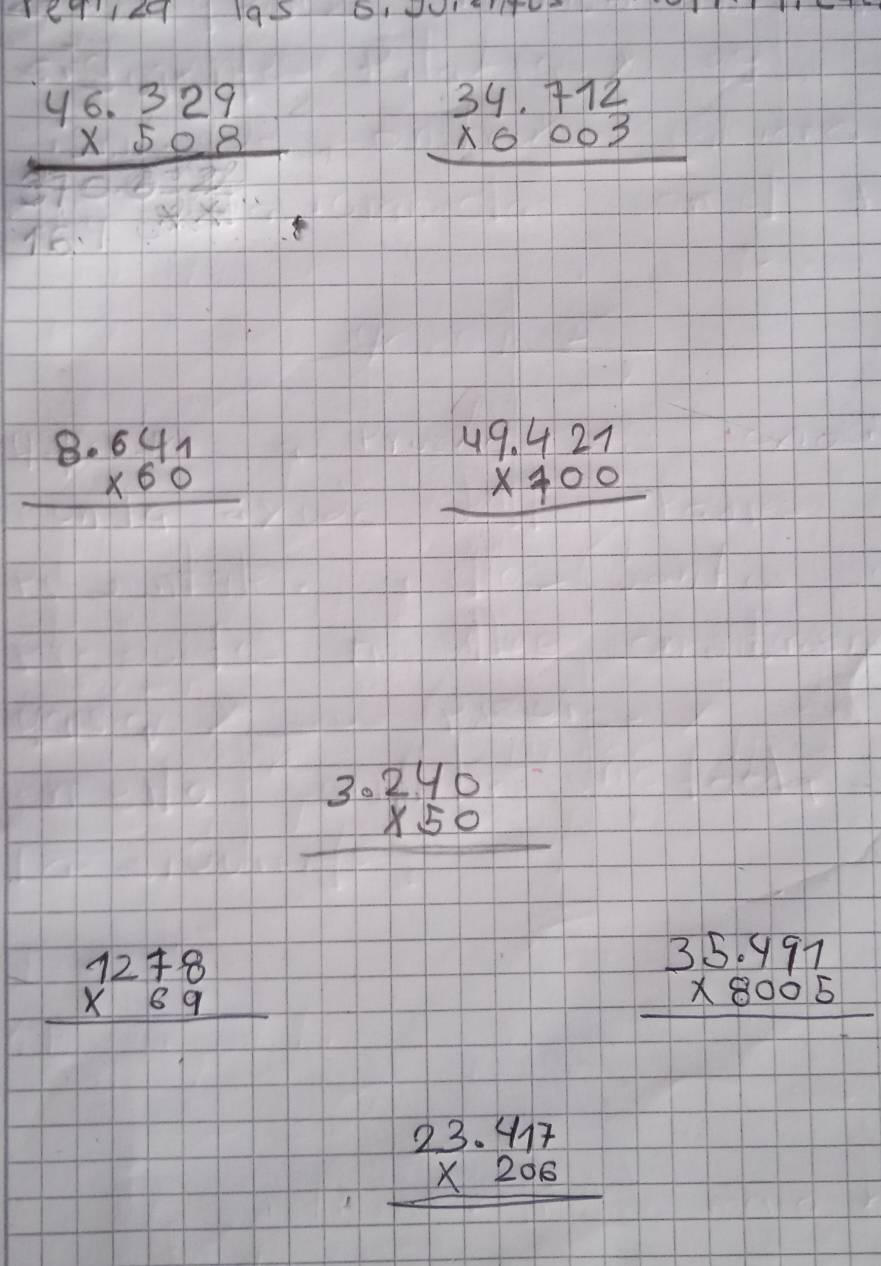 las
46.329
x 508
34.712
x6 003
8.641
x60
49.421
x700
3.240
x50
1278
x 69
35.491
x 8005
23.417
x 206